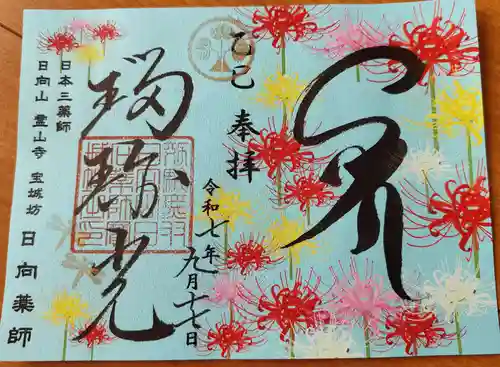 奉拝
乙巳
奉拝
令和七年
九月十七日
瑠璃光
日本三薬師
日向山 霊山寺 宝城坊
日向薬師